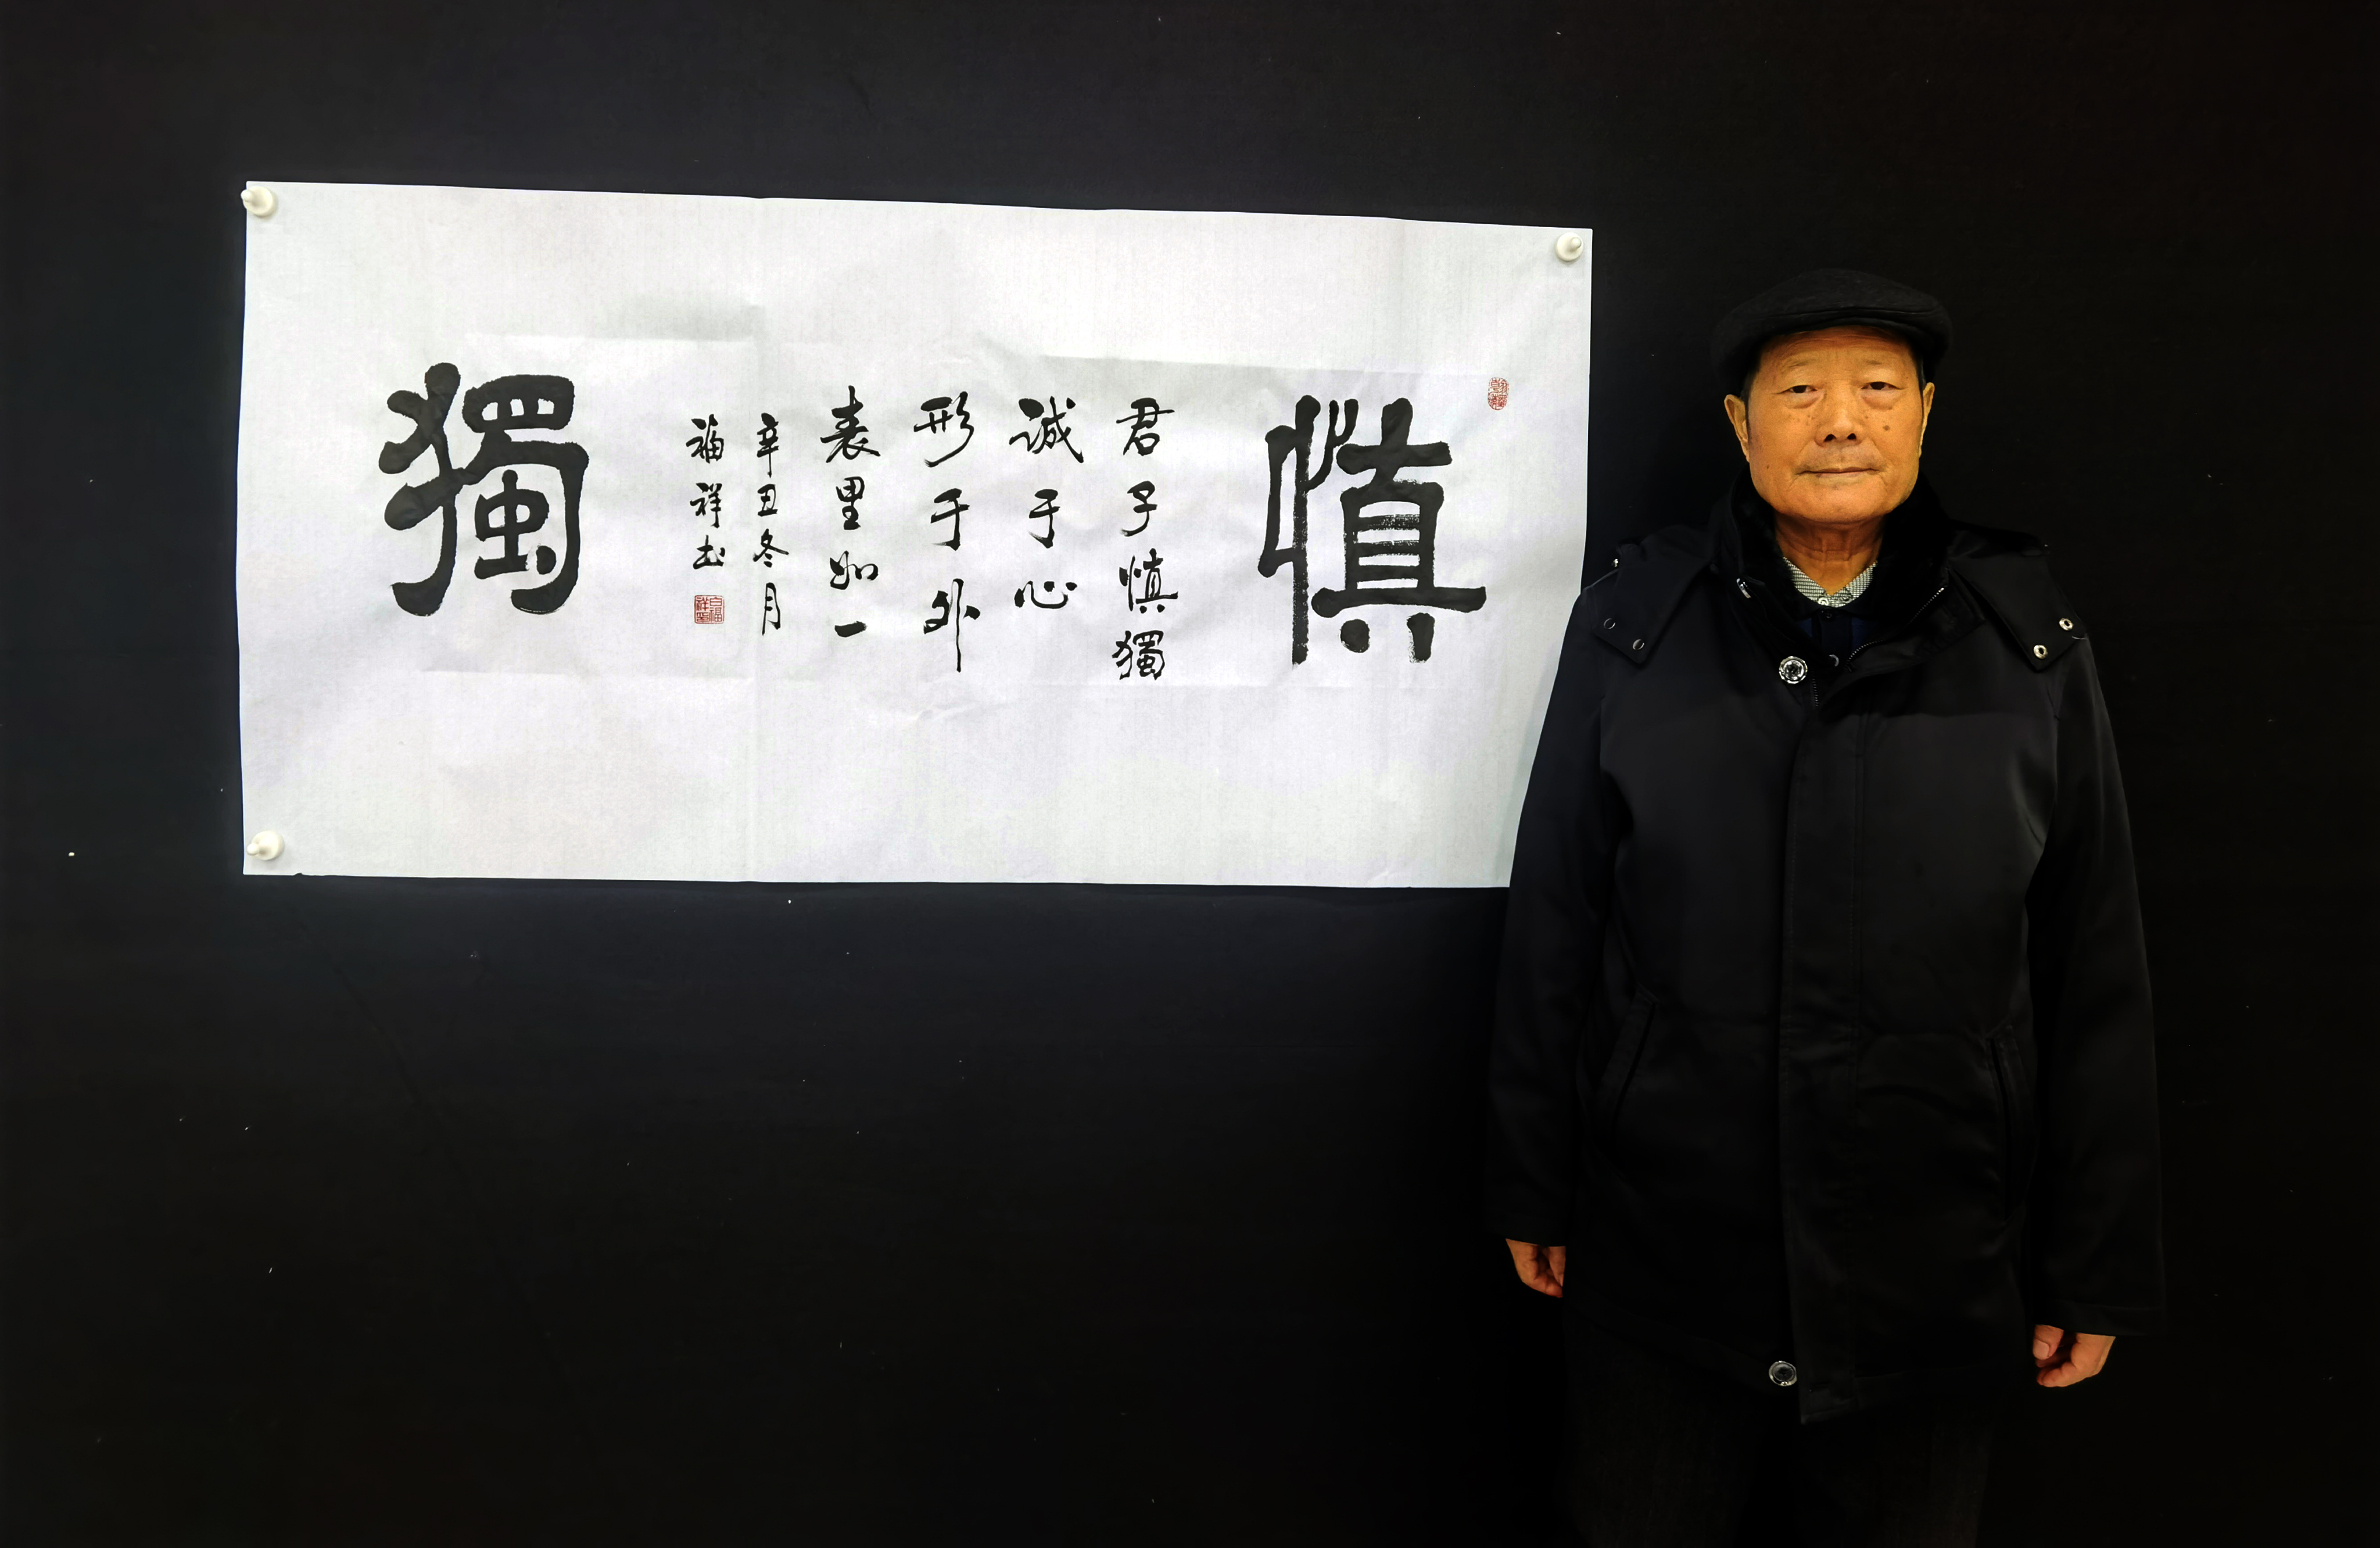 慎
君子慎獨
诚于心
形于外
表里如一
辛丑冬月
福祥书
獨